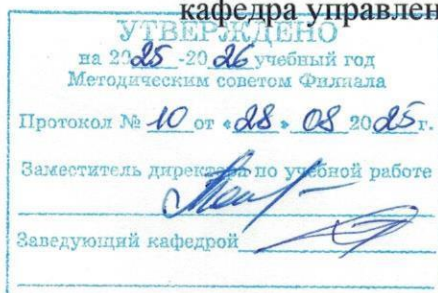 кафедра управлен
УТВЕРЖДЕНО
на 2025-2026 учебный год
Методическим советом Филиала
Протокол № 10 от «28» 08 2025г.
Заместитель директора по учебной работе
Заведующий кафедрой